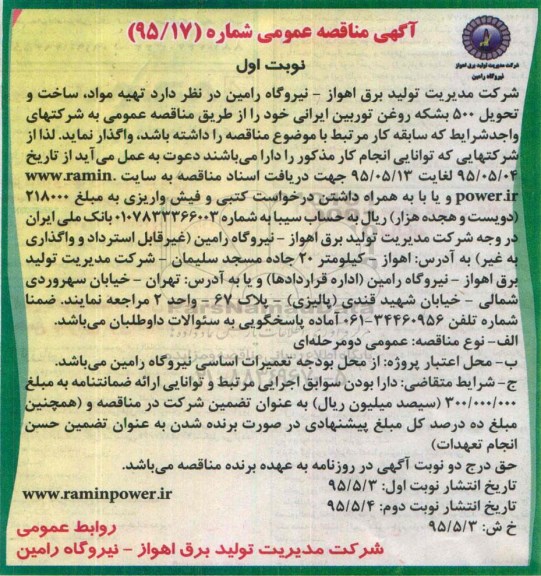 آگهی مناقصه عمومی شماره (۹۵/۱۷)
شرکت مدیریت تولید برق اهواز
نیروگاه رامین
نوبت اول
شرکت مدیریت تولید برق اهواز - نیروگاه رامین در نظر دارد تهیه مواد، ساخت و
تحویل ۵۰۰ بشکه روغن توربین ایرانی خود را از طریق مناقصه عمومی به شرکتهای
واجدشرایط که سابقه کار مرتبط با موضوع مناقصه را داشته باشد، واگذار نماید. لذا از
شرکتهایی که توانایی انجام کار مذکور را دارا می‌باشند دعوت به عمل می‌آید از تاریخ
۹۵/۰۵/۰۴ لغایت ۹۵/۰۵/۱۳ جهت دریافت اسناد مناقصه به سایت www.ramin.
power.ir و یا با به همراه داشتن درخواست کتبی و فیش واریزی به مبلغ ۲۱۸۰۰۰
(دویست و هجده هزار) ریال به حساب سیبا به شماره ۰۱۰۷۸۳۳۳۶۶۰۰۳ بانک ملی ایران
در وجه شرکت مدیریت تولید برق اهواز - نیروگاه رامین (غیرقابل استرداد و واگذاری
به غیر) به آدرس: اهواز - کیلومتر ۲۰ جاده مسجد سلیمان - شرکت مدیریت تولید
برق اهواز - نیروگاه رامین (اداره قراردادها) و یا به آدرس: تهران - خیابان سهروردی
شمالی - خیابان شهید قندی (پالیزی) - پلاک ۶۷ - واحد ۲ مراجعه نمایند. ضمنا
شماره تلفن ۳۴۴۶۰۹۵۶-۰۶۱ آماده پاسخگویی به سئوالات داوطلبان می‌باشد.
الف- نوع مناقصه: عمومی دومرحله‌ای
ب- محل اعتبار پروژه: از محل بودجه تعمیرات اساسی نیروگاه رامین می‌باشد.
ج- شرایط متقاضی: دارا بودن سوابق اجرایی مرتبط و توانایی ارائه ضمانتنامه به مبلغ
۳۰۰/۰۰۰/۰۰۰ (سیصد میلیون ریال) به عنوان تضمین شرکت در مناقصه و (همچنین
مبلغ ده درصد کل مبلغ پیشنهادی در صورت برنده شدن به عنوان تضمین حسن
انجام تعهدات)
حق درج دو نوبت آگهی در روزنامه به عهده برنده مناقصه می‌باشد.
تاریخ انتشار نوبت اول: ۹۵/۵/۳
www.raminpower.ir
تاریخ انتشار نوبت دوم: ۹۵/۵/۴
خ ش: ۹۵/۵/۳
روابط عمومی
شرکت مدیریت تولید برق اهواز - نیروگاه رامین